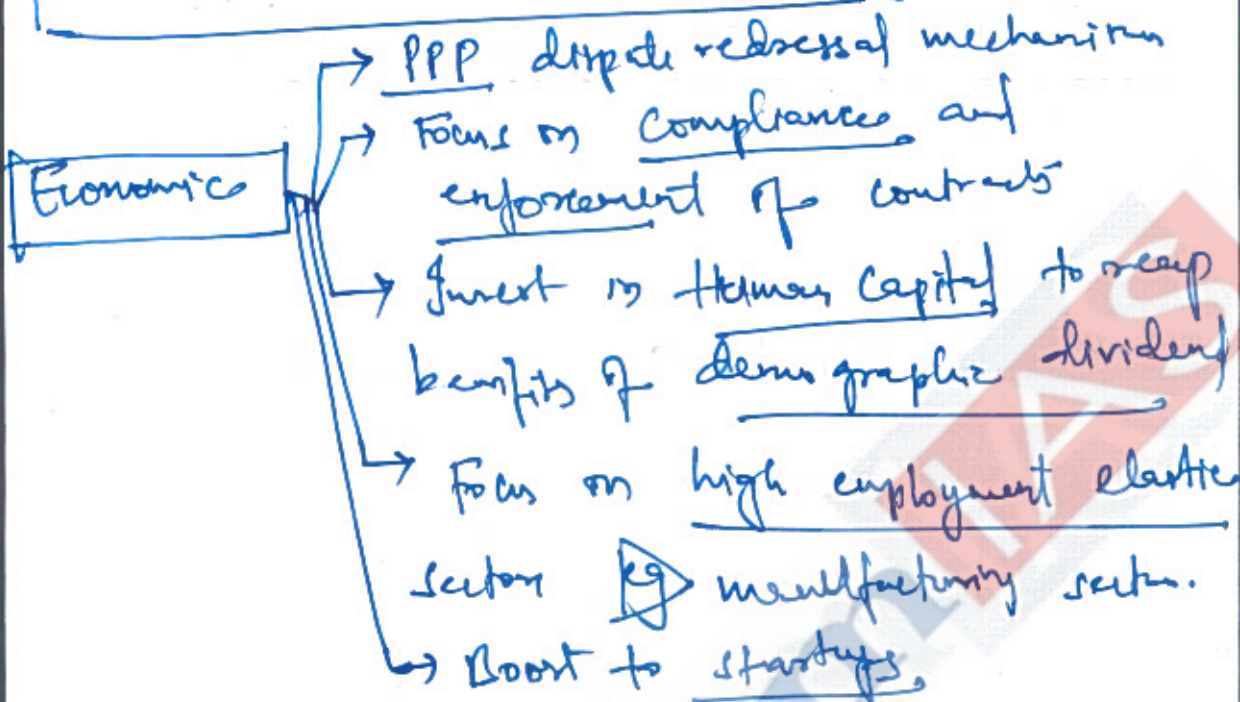 → PPP dispute redressal mechanism
→ Focus on Compliance and
Economic
enforcement of contracts
→ Invest in Human Capital to reap
benefits of demographic dividend
→ Focus on high employment elastic
sectors eg manufacturing sector.
→ Boost to startups.
IAS